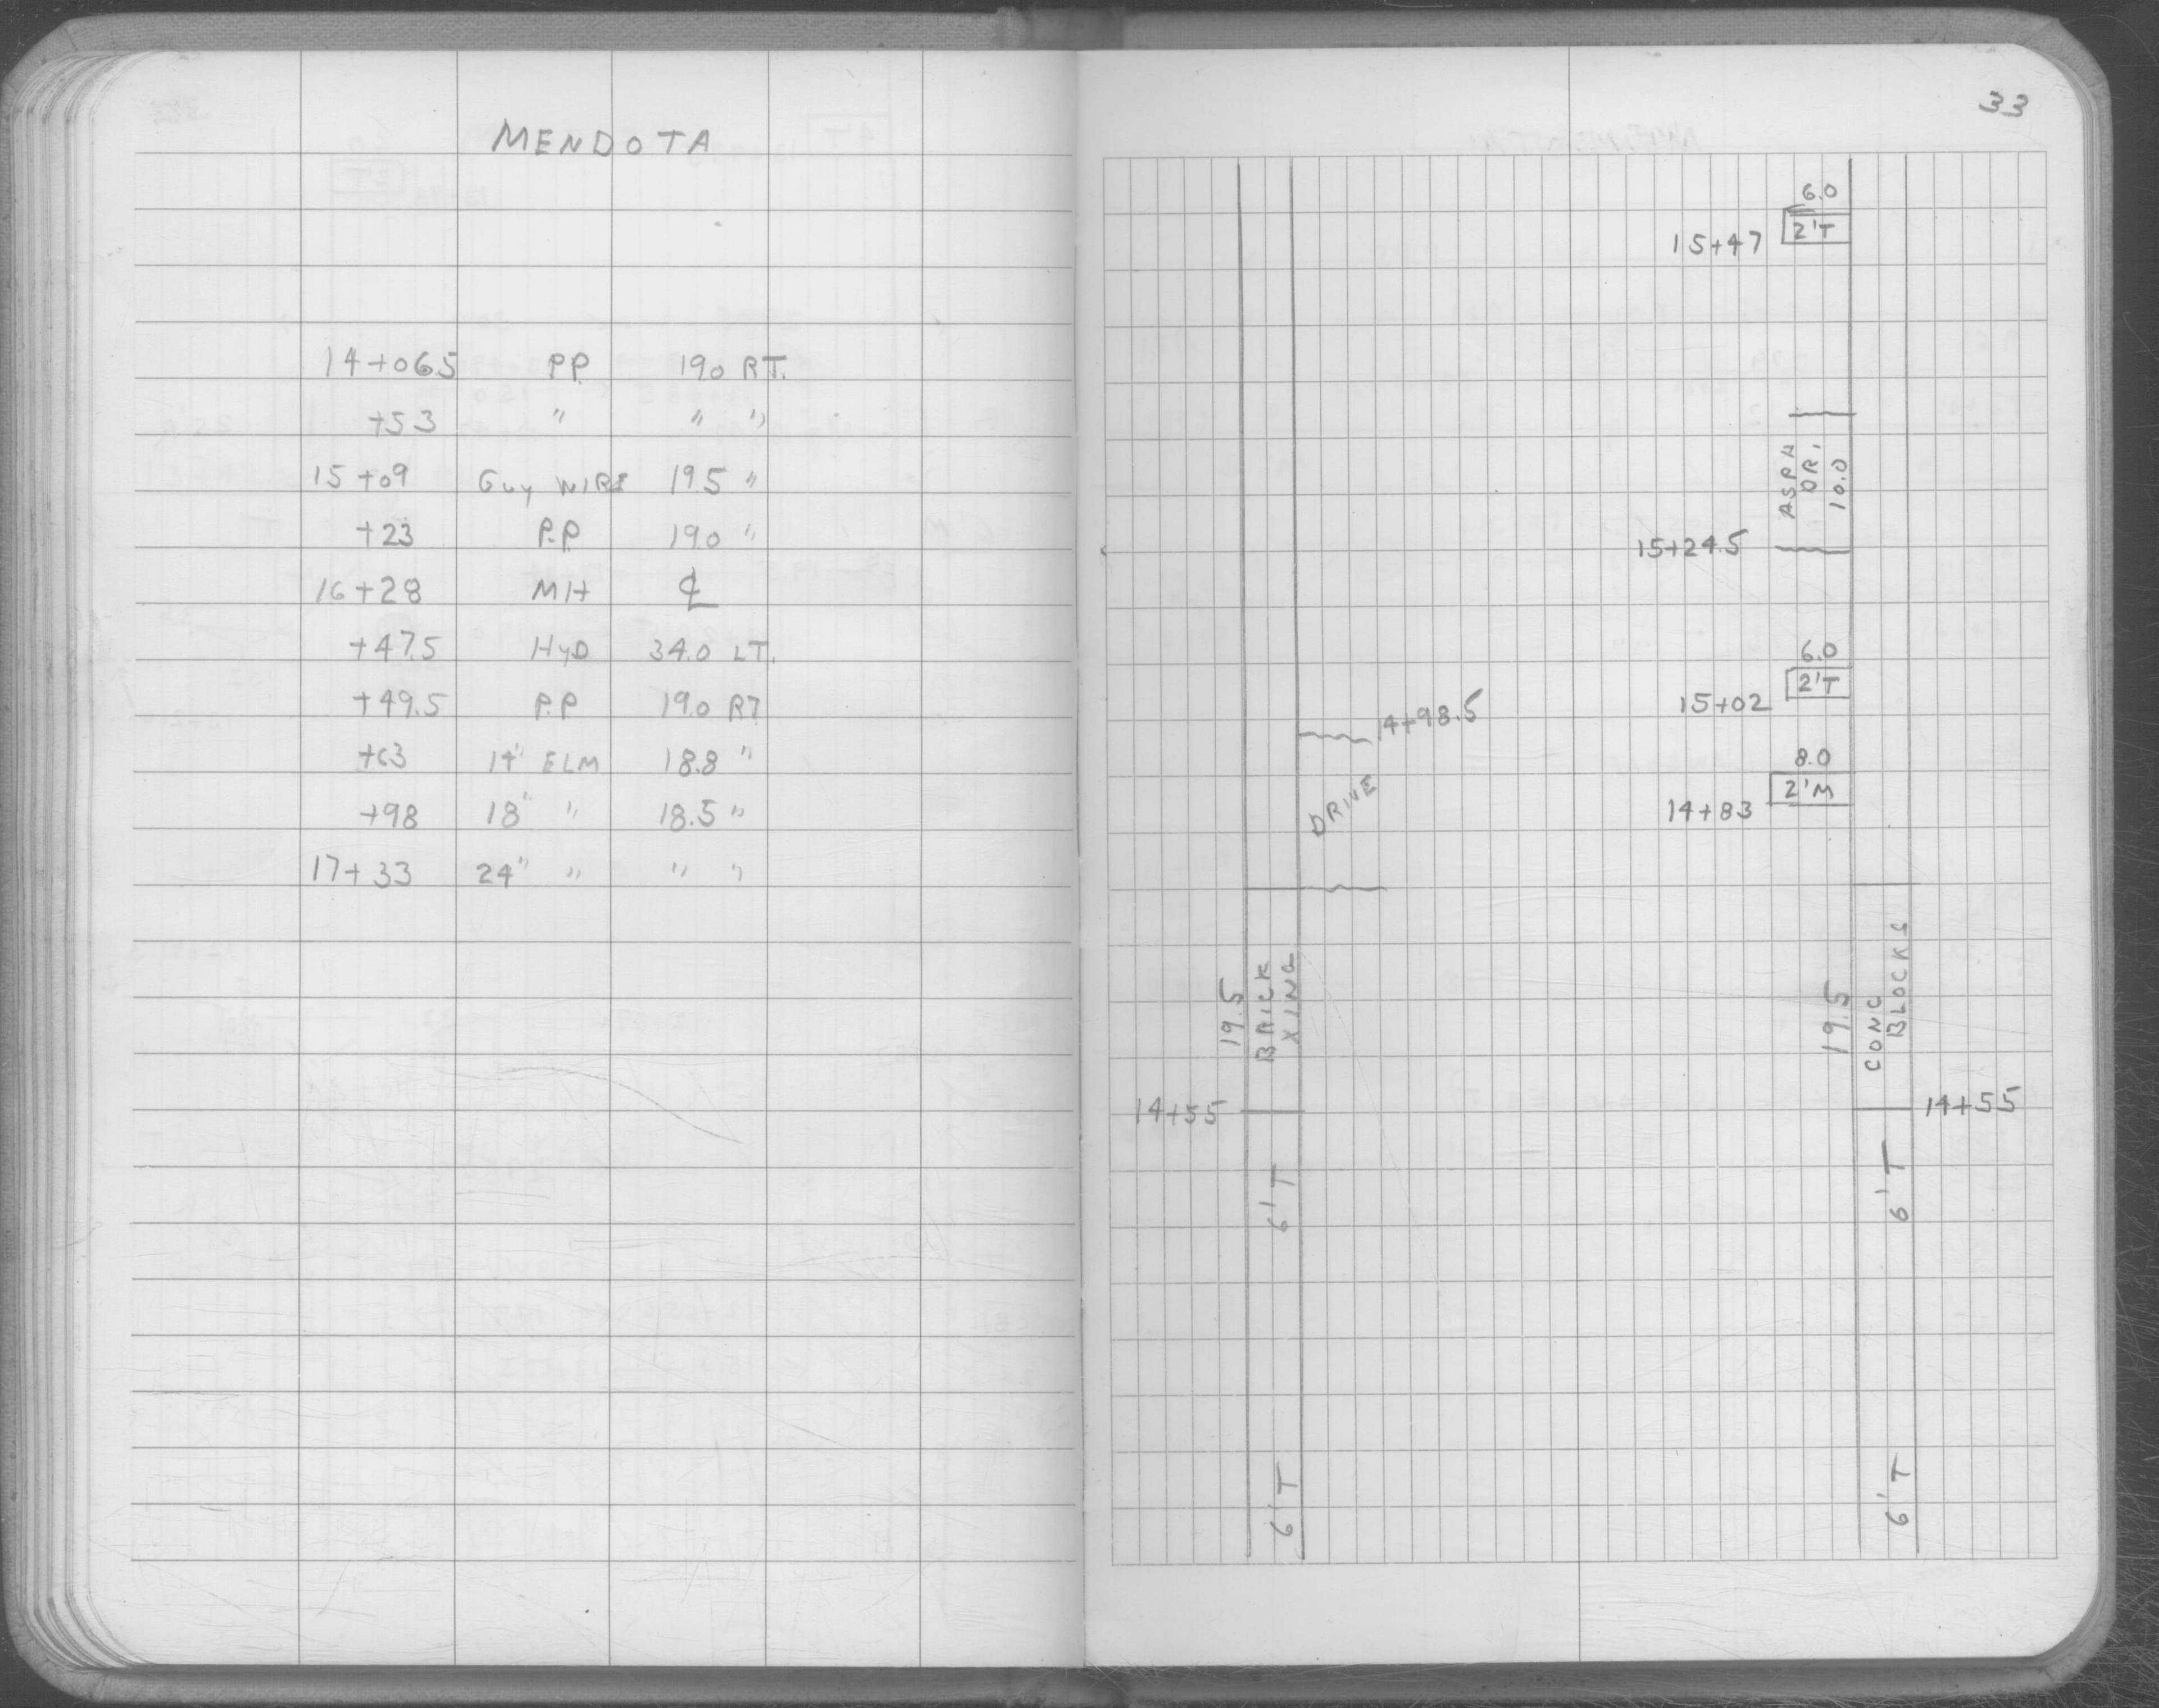 MENDOTA
14+06.5 P.P. 19.0 RT.
+53 " " "
15+09 Guy WIRE 19.5 "
+23 P.P. 19.0 "
16+28 MH ℄
+47.5 HyD 34.0 LT.
+49.5 P.P 19.0 RT
+63 14" ELM 18.8 "
+98 18" " 18.5 "
17+33 24" " " "
33
6.0
15+47 2'T
ASPH
DR.
10.0
15+24.5
6.0
15+02 2'T
14+98.5
8.0
14+83 2'M
DRIVE
19.5
BRICK
XING
19.5
CONC
BLOCKS
14+55
14+55
6'T
6'T
6'T
6'T